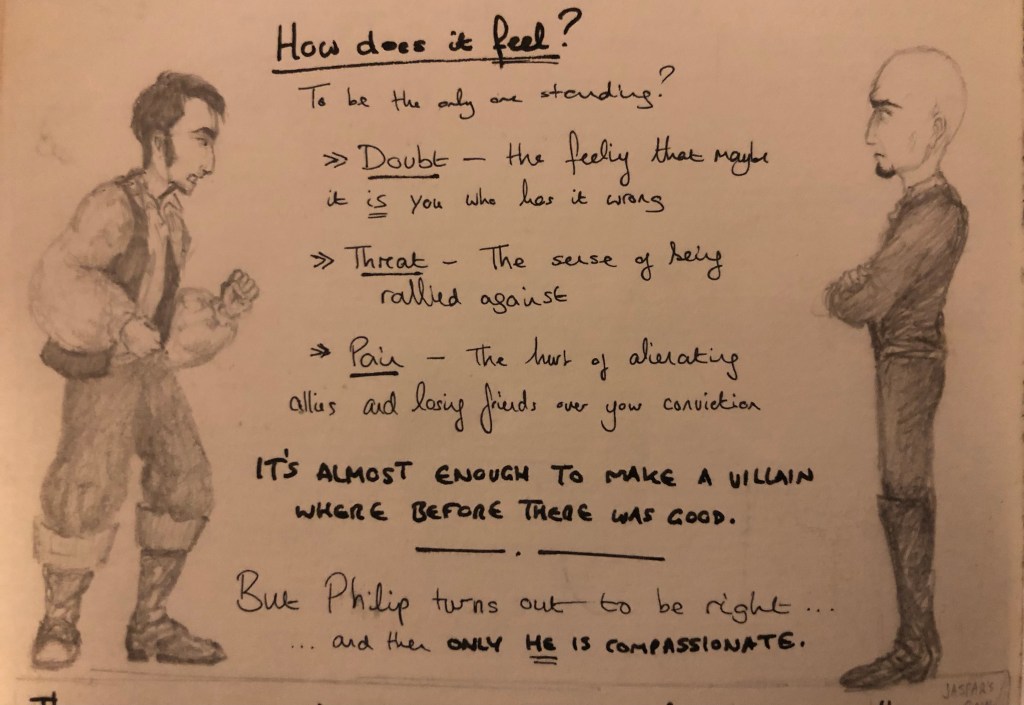 How does it feel?
To be the only one standing?
» Doubt – the feeling that maybe
it is you who has it wrong
» Threat – The sense of being
rallied against
» Pain – The hurt of alienating
allies and losing friends over your conviction
IT'S ALMOST ENOUGH TO MAKE A VILLAIN
WHERE BEFORE THERE WAS GOOD.
But Philip turns out to be right...
... and then ONLY HE IS COMPASSIONATE.
JASPAR'S